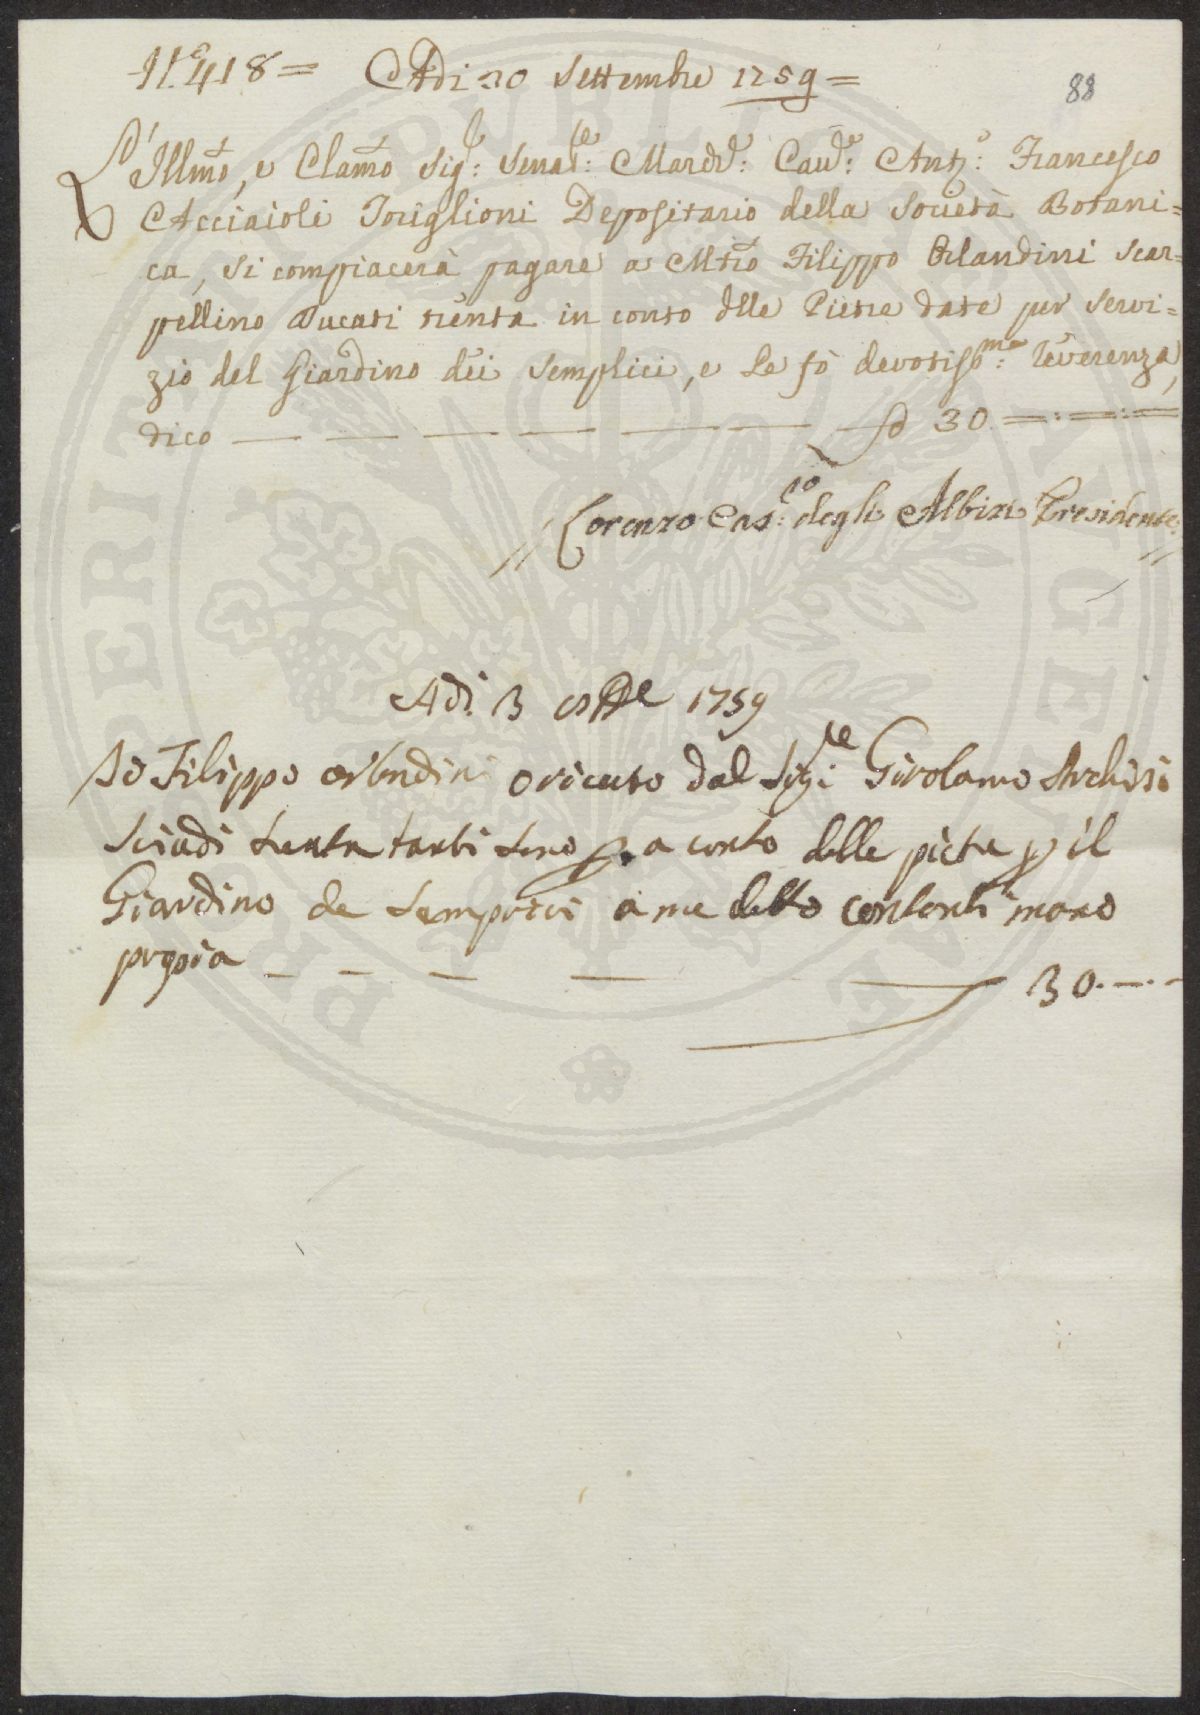 N.º 418 = Adi 30 Settembre 1759 =
88
L'Illmo, e Clarmo Sig.re Senat.re March.e Cav.e Ant.o Francesco
Acciaioli Toriglioni Depositario della Società Botani=
ca, si compiacerà pagare a Mtro Filippo Orlandini Scar=
pellino Ducati trenta in conto dlle Pietre date per servi=
zio del Giardino dei Semplici, e Le fò devotiss.ma reverenza,
dico — — — — — — — 30 =:=:=
Lorenzo Gas.ro degli Albizi Presidente
Adi 3 ottbre 1759
Io Filippo orlndini o riceuto dal Sig.re Girolamo
Sciudi trenta tanti sono a conto delle pietre p il
Giardino de Semprici a me detto contanti mano
prgoia — — — — — 30.—.—
PUBLICAE FELICITATIS PROSPERITATI